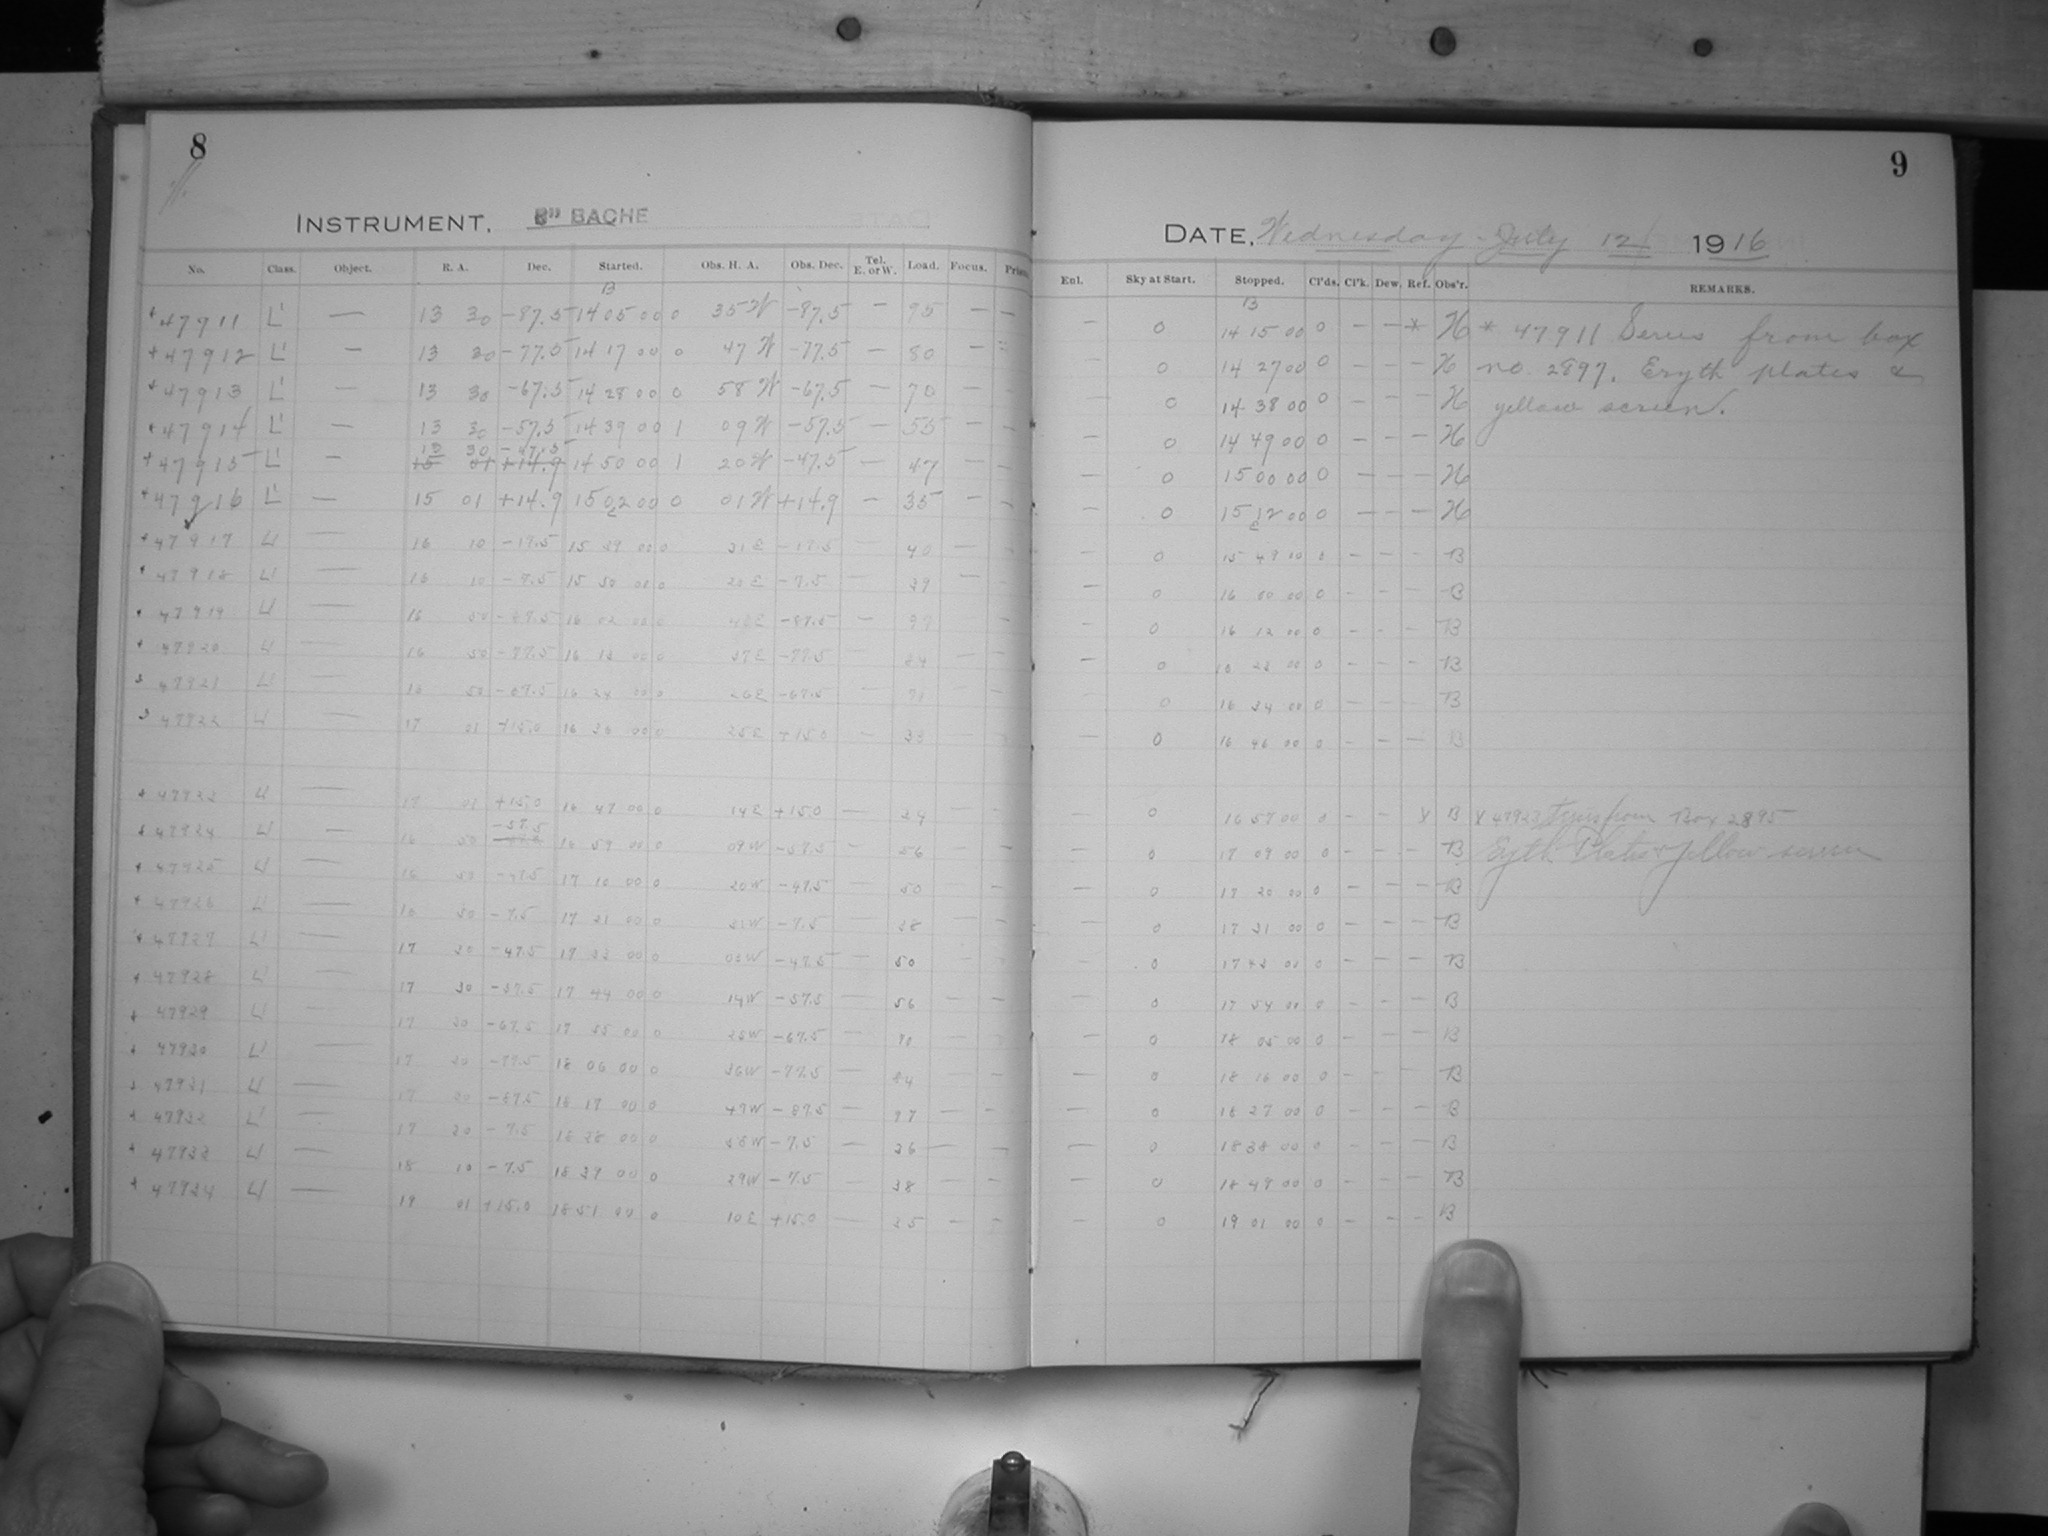 8
9
INSTRUMENT, 8" BACHE
DATE, Wednesday - July 12 1916
No. Class. Object. R. A. Dec. Started. Obs. H. A. Obs. Dec. Tel. E. or W. Load. Focus. Prism. Enl. Sky at Start. Stopped. Cl'ds. Cl'k. Dew. Ref. Obs'r. REMARKS.
B B
+ 47911 L' — 13 30 -87.5 14 05 00 0 35 W -87.5 — 95 — — — 0 14 15 00 0 — — * H * 47911 Series from box
+ 47912 L' — 13 30 -77.5 14 17 00 0 47 W -77.5 — 80 — — 0 14 27 00 0 — — — H no. 2897. Eryth plates &
+ 47913 L' — 13 30 -67.5 14 28 00 0 58 W -67.5 — 70 — — — 0 14 38 00 0 — — — H yellow screen.
+ 47914 L' — 13 30 -57.5 14 39 00 1 09 W -57.5 — 55 — — — 0 14 49 00 0 — — — H
13 30 -47.5
+ 47915 L' — 15 01 +14.9 14 50 00 1 20 W -47.5 — 47 — — — 0 15 00 00 0 — — — H
+ 47916 L' — 15 01 +14.9 15 02 00 0 01 W +14.9 — 35 — — — 0 15 12 00 0 — — — H
+ 47917 L' — 16 10 -17.5 15 39 00 0 31 E -17.5 — 40 — — — 0 15 49 00 0 — — — B
+ 47918 L' — 16 10 -7.5 15 50 00 0 20 E -7.5 — 39 — — — 0 16 00 00 0 — — — B
+ 47919 L' — 16 50 -87.5 16 02 00 0 48 E -87.5 — 97 — — 0 16 12 00 0 — — — B
+ 47920 L' — 16 50 -77.5 16 13 00 0 37 E -77.5 — 84 — — — 0 16 23 00 0 — — — B
47921 L' — 16 50 -67.5 16 24 00 0 26 E -67.5 — 71 — — — 0 16 34 00 0 — — — B
47922 L' — 17 01 +15.0 16 36 00 0 25 E +15.0 — 33 — — 0 16 46 00 0 — — — B
+ 47923 L' — 17 01 +15.0 16 47 00 0 14 E +15.0 — 34 — — — 0 16 57 00 0 — — X B X 47923 Series from Box 2895
-57.5
47924 L' — 16 50 16 59 00 0 09 W -57.5 — 56 — — — 0 17 09 00 0 — — — B Eryth Plates & yellow screen
+ 47925 L' — 16 50 -47.5 17 10 00 0 20 W -47.5 — 50 — — — 0 17 20 00 0 — — — B
+ 47926 L' — 16 50 -7.5 17 21 00 0 31 W -7.5 — 38 — — — 0 17 31 00 0 — — — B
+ 47927 L' — 17 30 -47.5 17 33 00 0 03 W -47.5 — 50 — — — 0 17 43 00 0 — — — B
+ 47928 L' — 17 30 -57.5 17 44 00 0 14 W -57.5 — 56 — — — 0 17 54 00 0 — — — B
+ 47929 L' — 17 30 -67.5 17 55 00 0 25 W -67.5 — 71 — — — 0 18 05 00 0 — — — B
+ 47930 L' — 17 30 -77.5 18 06 00 0 36 W -77.5 — 84 — — — 0 18 16 00 0 — — — B
47931 L' — 17 30 -87.5 18 17 00 0 47 W -87.5 — 97 — — — 0 18 27 00 0 — — — B
+ 47932 L' 17 30 -7.5 18 28 00 0 58 W -7.5 — 36 — — — 0 18 38 00 0 — — — B
+ 47933 L' — 18 10 -7.5 18 39 00 0 29 W -7.5 — 38 — — — 0 18 49 00 0 — — — B
+ 47934 L' — 19 01 +15.0 18 51 00 0 10 E +15.0 — 35 — — — 0 19 01 00 0 — — — B